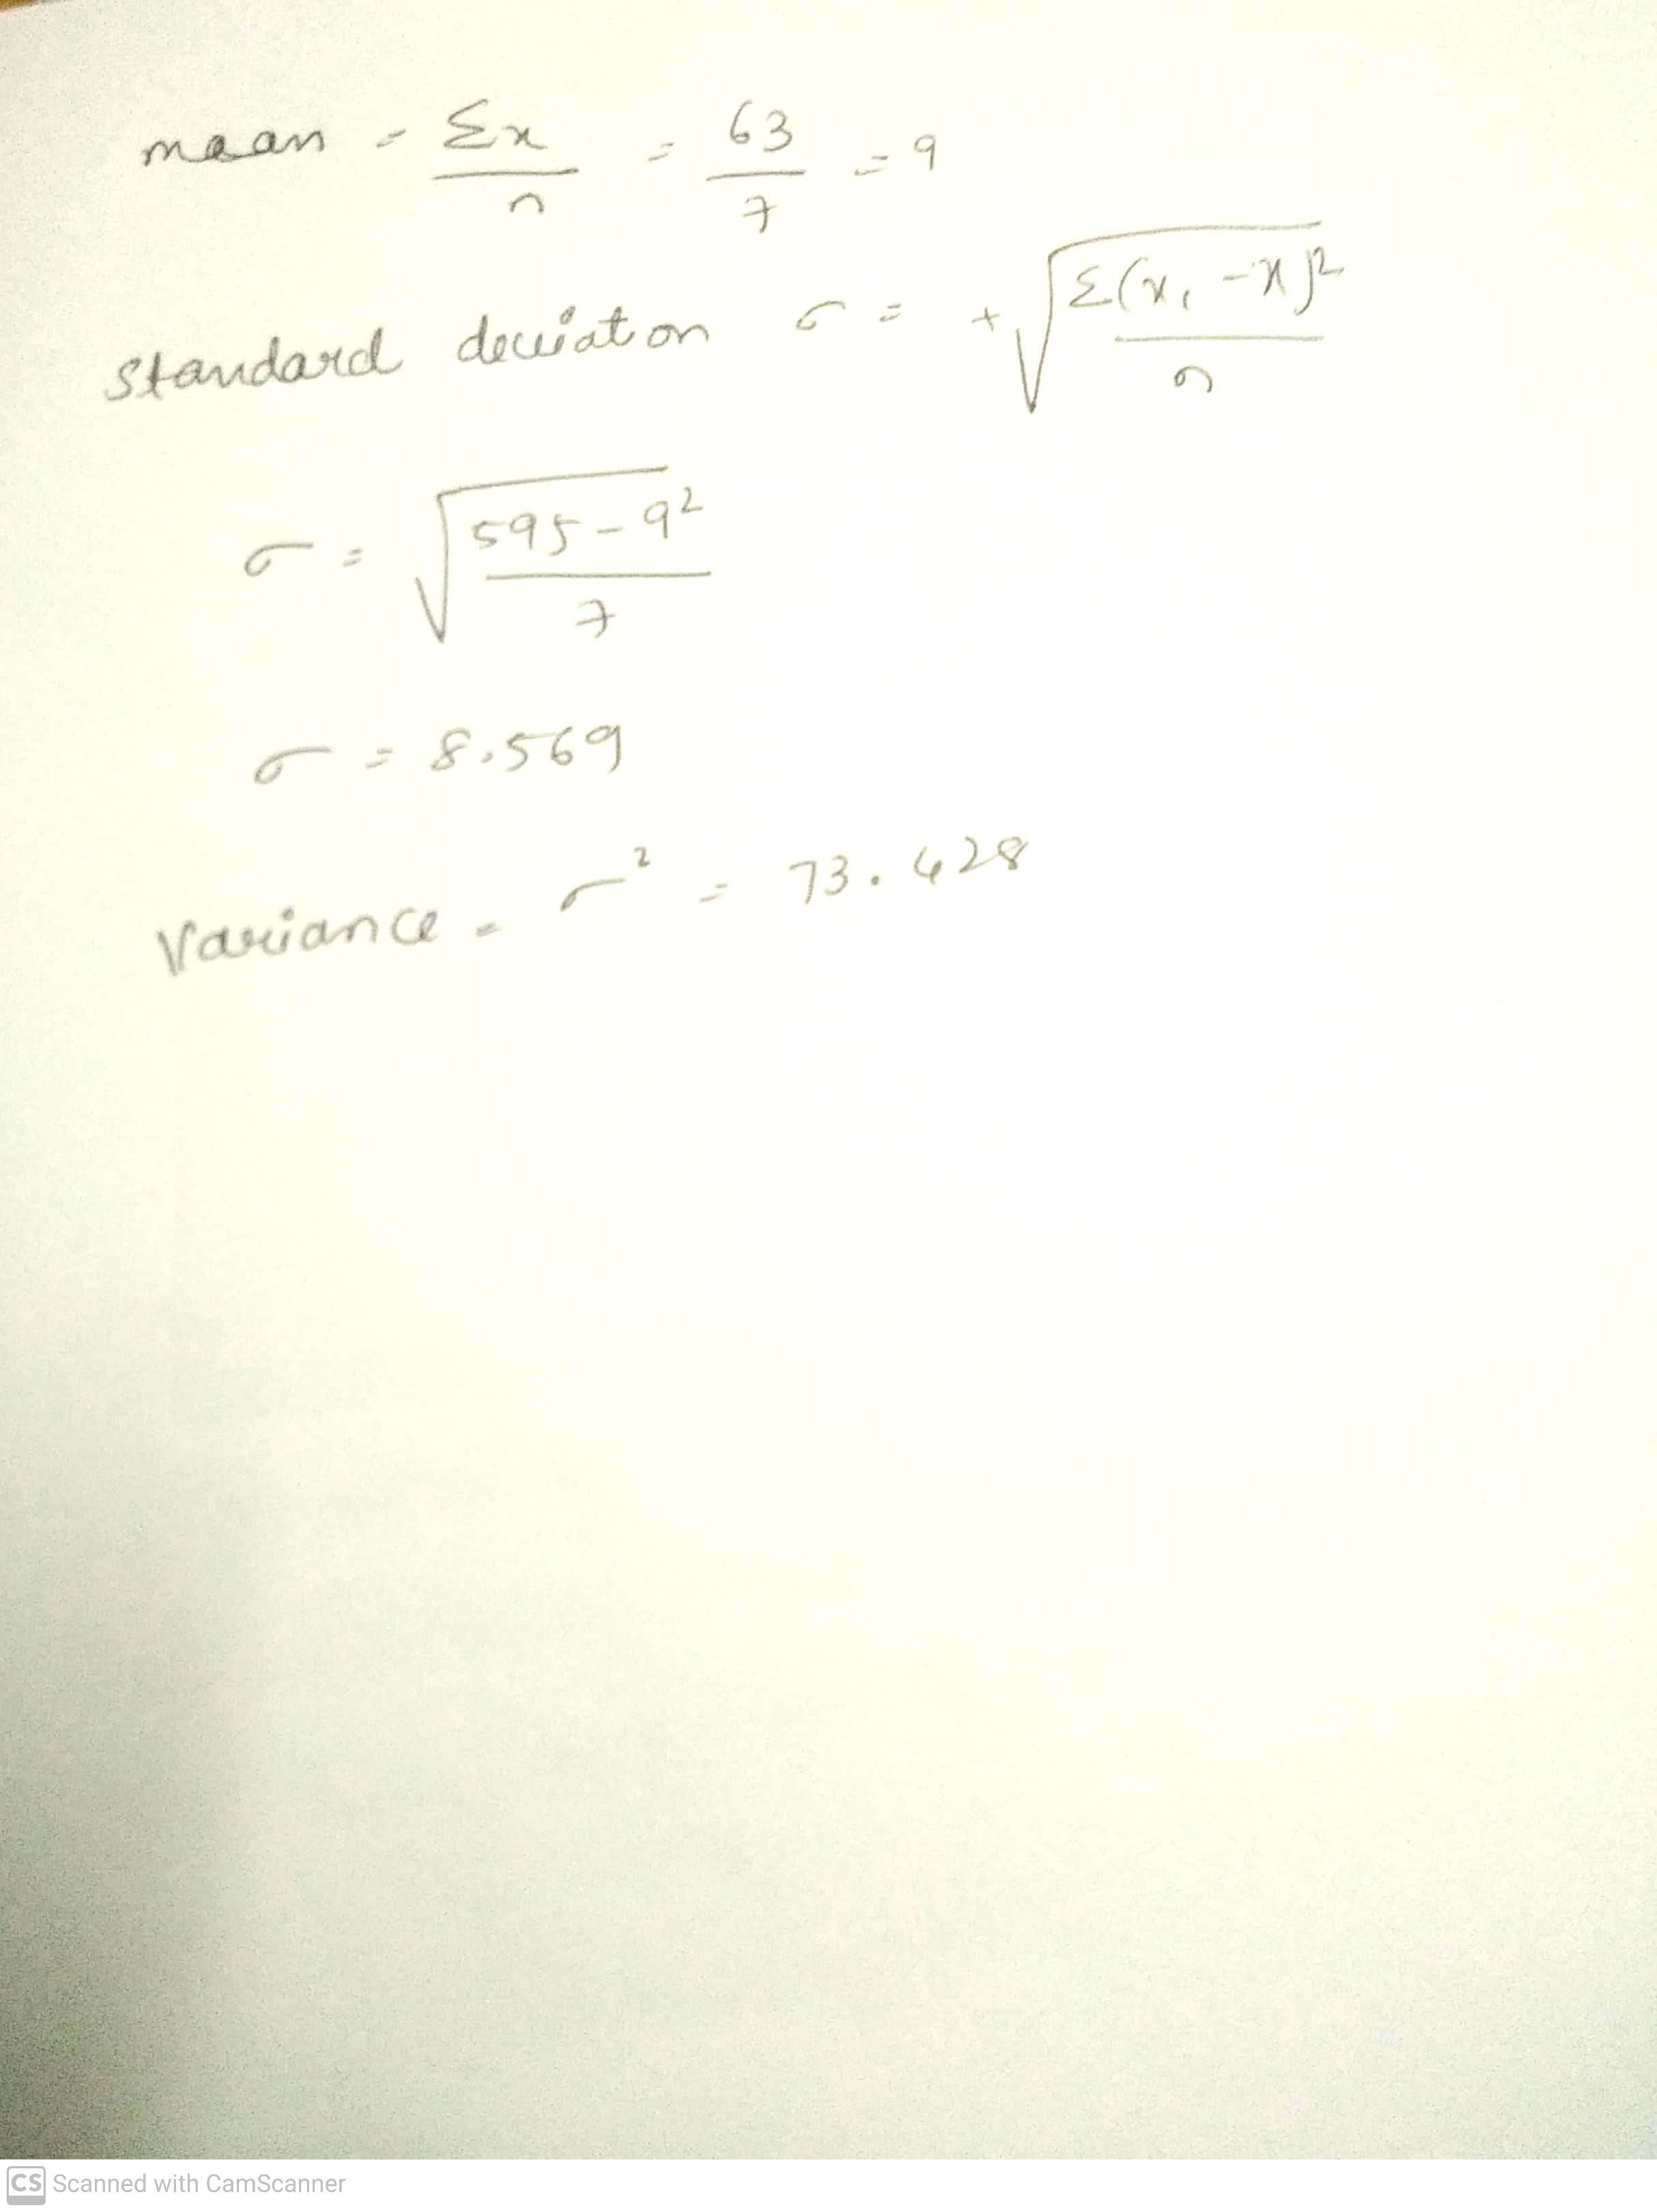 mean = Σx / n = 63 / 7 = 9
standard deviaton σ = +√(Σ(x₁ - x)² / n)
σ = √(595 - 9² / 7)
σ = 8.569
Variance = σ² = 73.428
CS Scanned with CamScanner